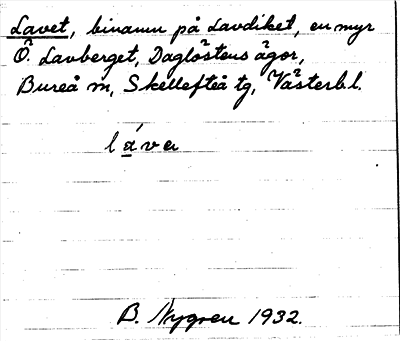 Lavet, binamn på Lavdiket, en myr
Ö. Lavberget, Daglöstens ägor,
Bureå sn, Skellefteå tg, Västerb. l.
B. Nygren 1932.